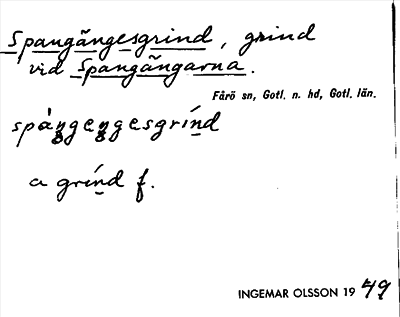 Spangängesgrind, grind
vid Spangängarna.
Fårö sn, Gotl. n. hd, Gotl. län.
spàŋgeŋgesgrínd
a grínd f.
INGEMAR OLSSON 19 49